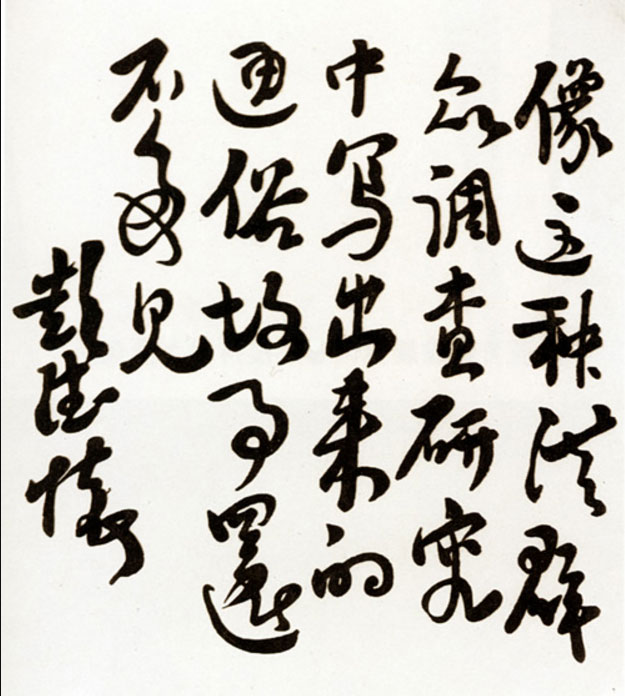 像这种从群
众调查研究
中写出来的
通俗故事還
不多见
彭德懷